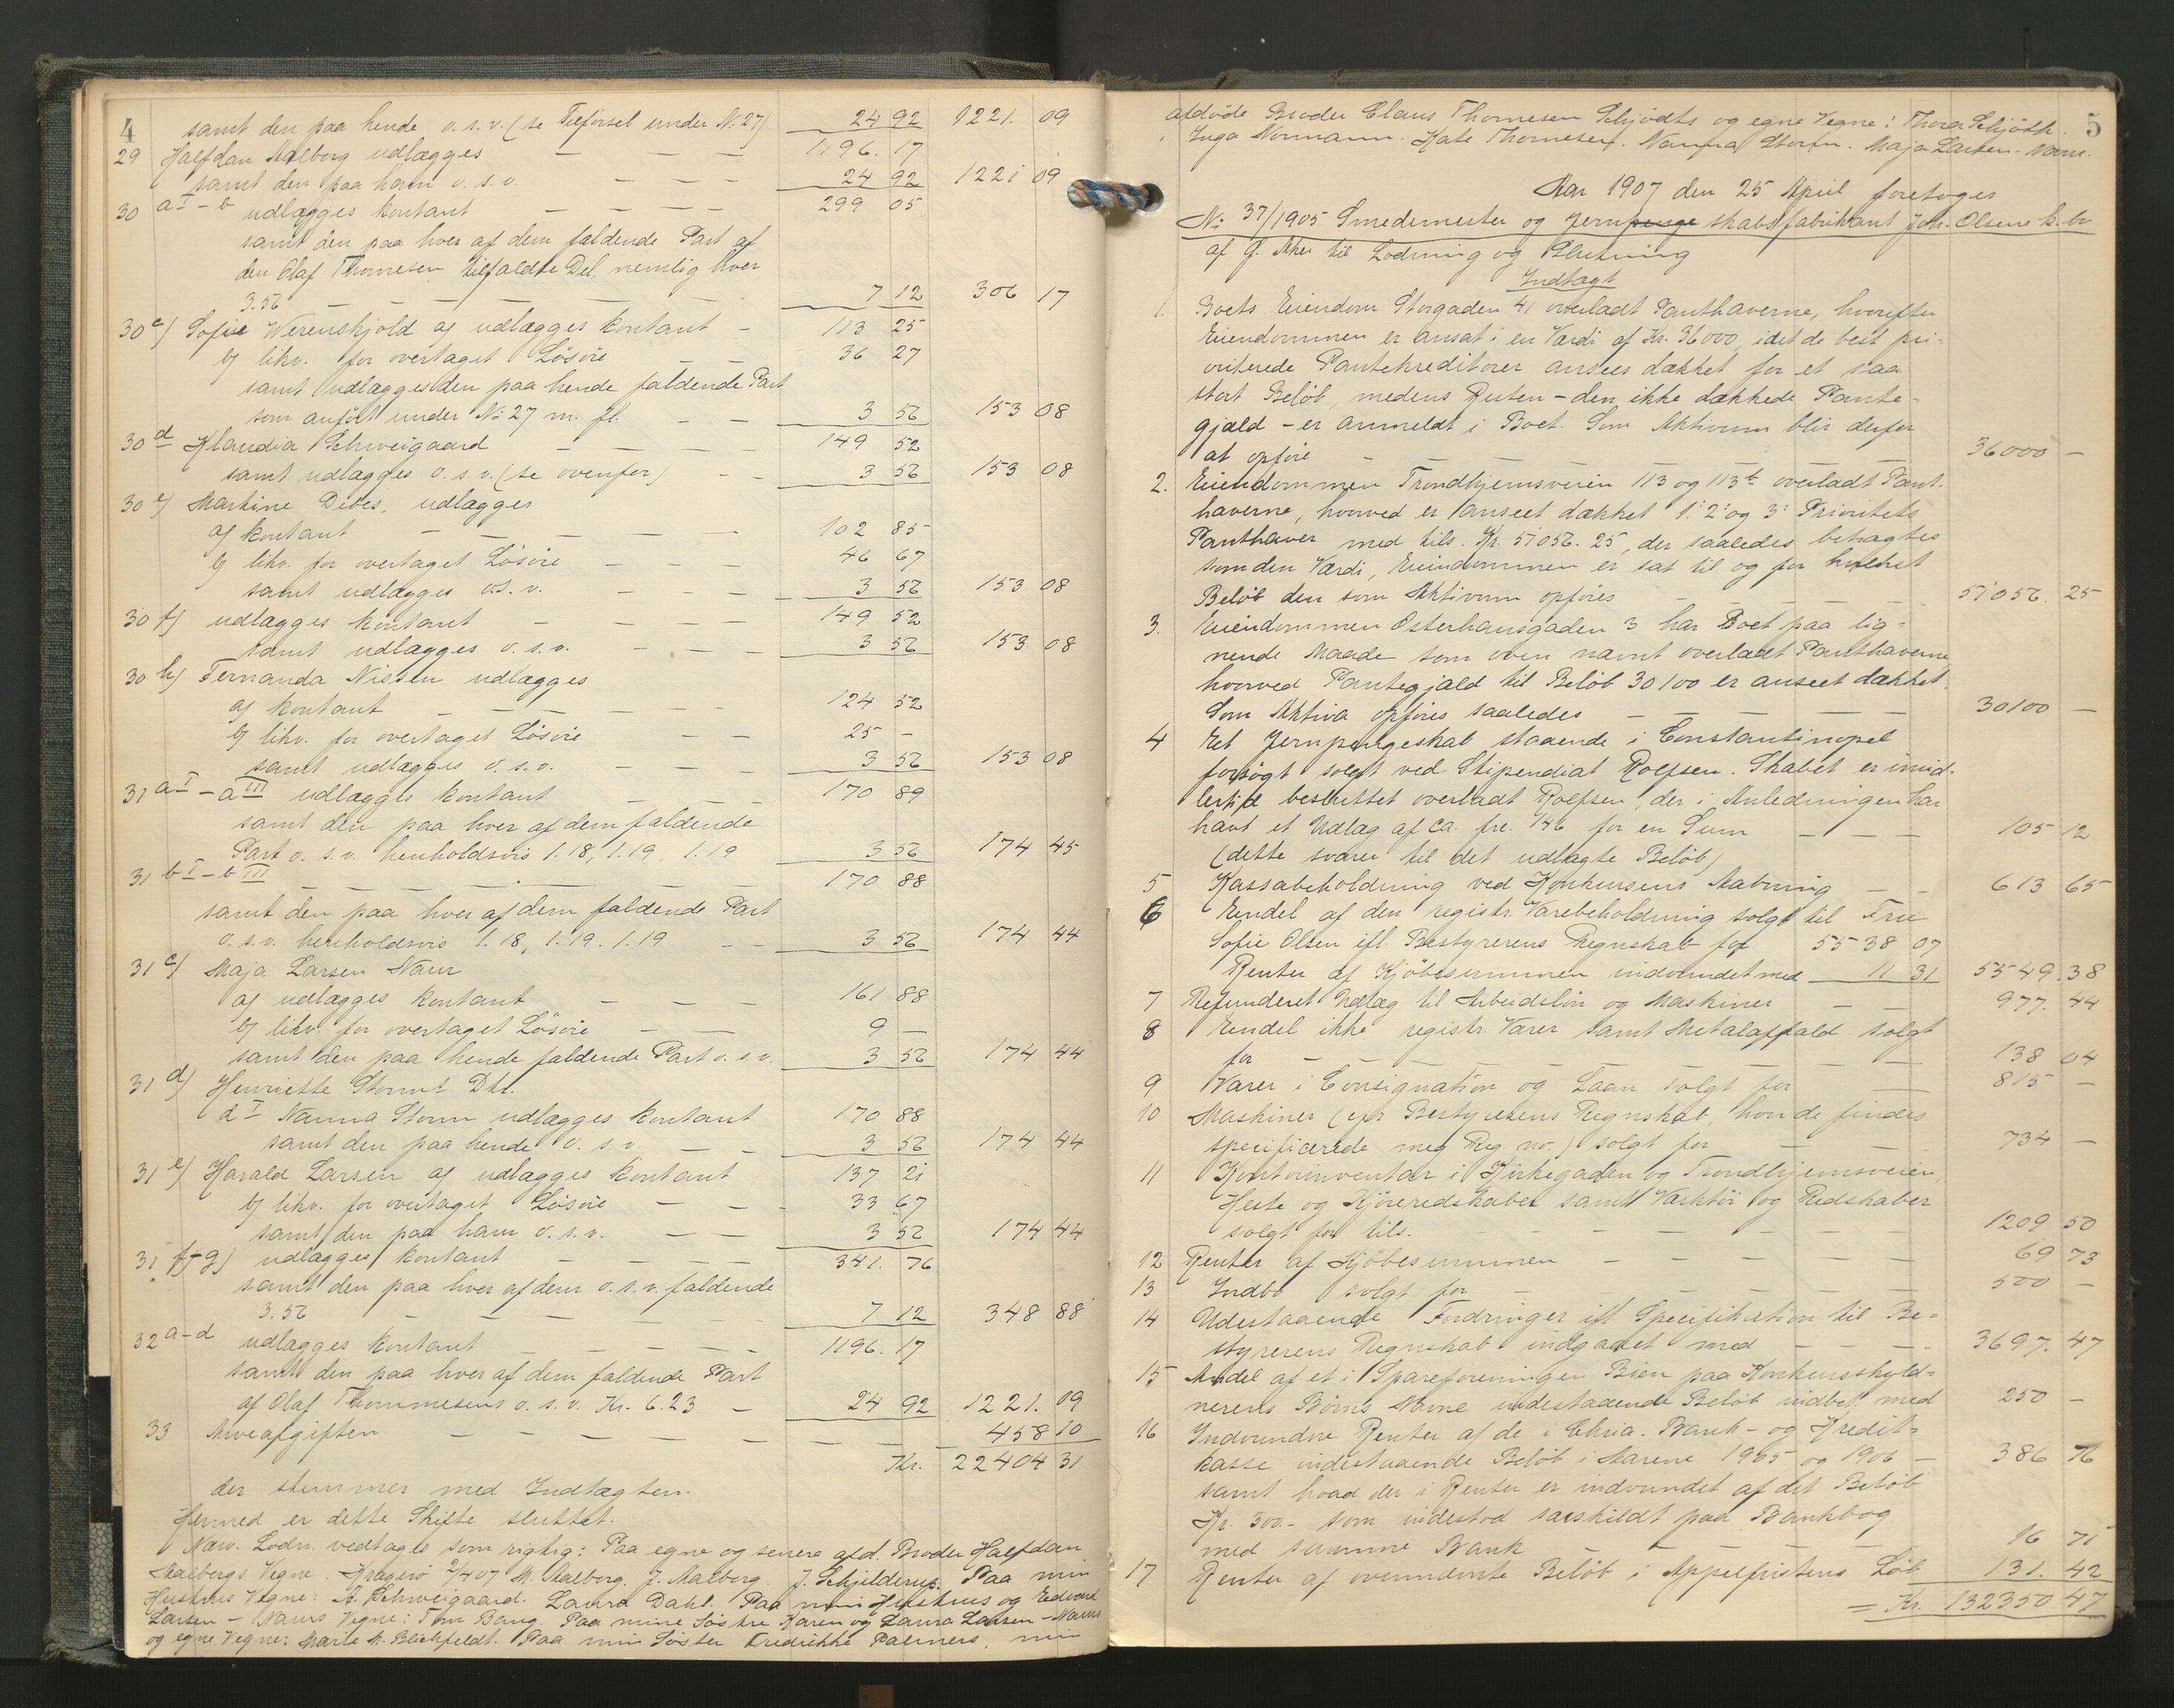 4
samt den paa hende o. s. v. (se Tilførsel under No 27) 24 92 1221. 09
29 Halfdan Aalborg udlægges — — — 1196. 17
samt den paa ham o. s. v. — — — 24 92 1221 09
30 a I - b udlægges kontant — — — — 299 05
samt den paa hver af dem faldende Part af
den Olaf Thomesen tilfaldte Del, nemlig hver
3.56 — — — — — — 7 12 306 17
30 c) Sofie Werenskjold a) udlægges kontant — 113 25
b) likv. for overtaget Løsøre — — 36 27
samt udlægges den paa hende faldende Part
som anført under No 27 m. fl. — — 3 56 153 08
30 d Klaudia Schweigaard — — — — 149 52
samt udlægges o. s. v. (se ovenfor) — — 3 56 153 08
30 e) Martine Debes, udlægges
a) kontant — — — — — 102 85
b) likv. for overtaget Løsøre — — — 46 67
samt udlægges o. s. v. — — — 3 56 153 08
30 f) udlægges kontant — — — — 149 52
samt udlægges o. s. v. — — — 3 56 153 08
30 h) Fernanda Nissen udlægges
a) kontant — — — — — 124 52
b) likv. for overtaget Løsøre — — 25 —
samt udlægges o. s. v. — — — 3 56 153 08
31 a I - a III udlægges kontant — — — 170 89
samt den paa hver af dem faldende
Part o. s. v. henholdsvis 1.18, 1.19, 1.19 3 56 174 45
31 b I - b III — — — — — — 170 88
samt den paa hver af dem faldende Part
o. s. v. henholdsvis 1.18, 1.19. 1.19 — — 3 56 174 44
31 c) Maja Larsen Naur
a) udlægges kontant — — — 161 88
b) likv. for overtaget Løsøre — — 9 —
samt den paa hende faldende Part o. s. v. 3 56 174 44
31 d) Henriette Storms Dtr.
d I Nanna Storm udlægges kontant 170 88
samt den paa hende o. s. v. — — 3 56 174 44
31 e) Harald Larsen a) udlægges kontant 137 21
b) likv. for overtaget Løsøre — — — 33 67
samt den paa ham o. s. v. — — 3 56 174 44
31 f-g) udlægges kontant — — — — 341. 76
samt den paa hver af dem o. s. v. faldende
3.56 — — — — — — 7 12 348 88
32 a-d udlægges kontant — — — — — 1196. 17
samt den paa hver af dem faldende Part
af Olaf Thommesens o. s. v. Kr. 6.23 — 24 92 1221. 09
33 Arveafgiften — — — — — — — — 458 10
Kr. 22404 31
der stemmer med Indtægten.
Hermed er dette Skifte sluttet.
Nærv. Lodn. vedtages som rigtig: Paa egne og senere afd. Broder Halfdan
Aalborgs Vegne. Kragerø 9/4 07 M. Aalborg. J. Aalborg. J. Schjelderup. Paa min
Hustrus Vegne: A. Schweigaard. Laura Dahl. Paa min Hustrus og Edvard
Larsen - Naurs Vegne: Tom Bang. Paa mine Søstre Karen og Laura Larsen - Naurs
og egne Vegne: Marie M. Blichfeldt. Paa min Søster Fredrikke Palmers, min
5
afdøde Broder Claus Thomesen Schjødts og egne Vegne: Thora Schjøth.
Inga Normann. Kate Thomesen. Nanna Storm. Maja Larsen - Naur.
Aar 1907 den 25 April foretoges
No 37/1905 Smedemester og Jernpenge skabsfabrikant Joh. Olsens k. bo
af G. Aker til Lodning og Slutning
Indtægt
1. Boets Eiendom Storgaden 41 overladt Panthaverne, hvorefter
Eiendommen er ansat i en Værdi af Kr. 36000, idet de best pri-
oriterede Pantekreditorer ansees dækket for et saa
stort Beløb, medens Resten - den ikke dækkede Pante-
gjæld - er anmeldt i Boet. Som Aktivum blir derfor
at opføre — — — — — — 36000 —
2. Eiendommen Trondhjemsveien 113 og 113 b overladt Pant-
haverne, hvorved er anseet dækket 1' 2' og 3' Prioritets
Panthaver med tils. Kr. 51056. 25, der saaledes betragtes
som den Værdi, Eiendommen er sat til og for hvilket
Beløb den som Aktivum opføres — — — 51056. 25
3. Eiendommen Osterhausgaden 3 har Boet paa lig-
nende Maade som oven nævnt overladt Panthaverne,
hvorved Pantegjæld til Beløb 30100 er anseet dækket.
Som Aktiva opføres saaledes — — — — 30100 —
4 Et Jernpengeskab staaende i Constantinopel
forsøgt solgt ved Stipendiat Rolfsen. Skabet er imid-
lertid besluttet overladt Rolfsen, der i Anledningen har
havt et Udlæg af ca. frc. 146 for en Sum — — — 105 12
(dette svarer til det udlagte Beløb)
5 Kassabeholdning ved Konkursens Aabning — — 613 65
6 Endel af den registr. Varebeholdning solgt til Frue
Sofie Olsen ifl. Bestyrerens Regnskab for 5538 07
Renter af Kjøbesummen indvundet med — 11 31 5549. 38
7 Refunderet Udlæg til Arbeidsløn og Maskiner — — 977. 44
8 Endel ikke registr. Varer samt Metalaffald solgt
for — — — — — — — — 138 04
9 Varer i Consignation og Laan solgt for — — 815 —
10 Maskiner (efr Bestyrerens Regnskab, hvor de findes
specificerede med Reg no.) solgt for — — 734 —
11 Kontorinventar i Kirkegaden og Trondhjemsveien,
Heste og Kjøreredskaber samt Værktøi og Redskaber
solgt for tils. — — — — — — 1209 50
12 Renter af Kjøbesummen — — — — — 69 73
13 Indbo solgt for — — — — — 500 —
14 Udestaaende Fordringer ifl Specifikation til Be-
styrerens Regnskab indgaaet med — — — — 3697. 47
15 Andel af et i Spareforeningen Bien paa Konkursskyld-
nerens Børns Navne indestaaende Beløb indbet. med 250 —
16 Indvundne Renter af de i Chria. Bank - og Kredit-
kasse indestaaende Beløb i Aarene 1905 og 1906 — 386 76
samt hvad der i Renter er indvundet af det Beløb
Kr. 300.- som indestod særskildt paa Bankbog
med samme Bank — — — — — 16 71
17 Renter af ovennævnte Beløb i Appelfristens Løb 131. 42
= Kr. 132350 47